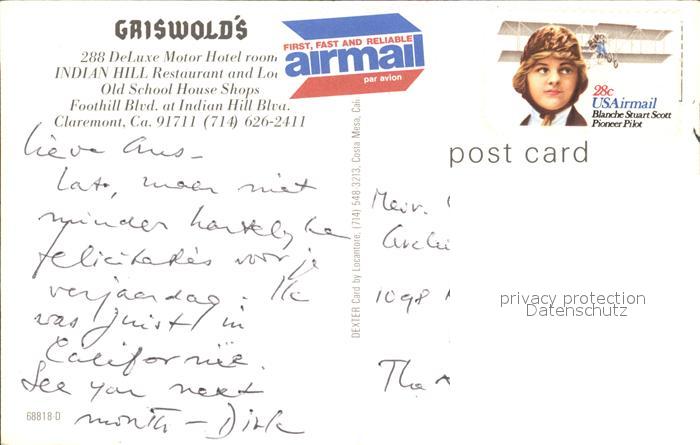 GRISWOLD'S
288 DeLuxe Motor Hotel room
INDIAN HILL Restaurant and Lou
Old School House Shops
Foothill Blvd. at Indian Hill Blvd.
Claremont, Ca. 91711 (714) 626-2411
FIRST, FAST AND RELIABLE
airmail
par avion
28c
USAirmail
Blanche Stuart Scott
Pioneer Pilot
post card
Lieve Ans -
Laat, maar niet
minder hartelyke
felicitaties voor je
verjaardag. Ik
was juist in
Californië.
See you next
month - Dirk
68818-D
DEXTER Card by Locantore, (714) 548-3213, Costa Mesa, Cali
Mevr.
1098
The
privacy protection
Datenschutz